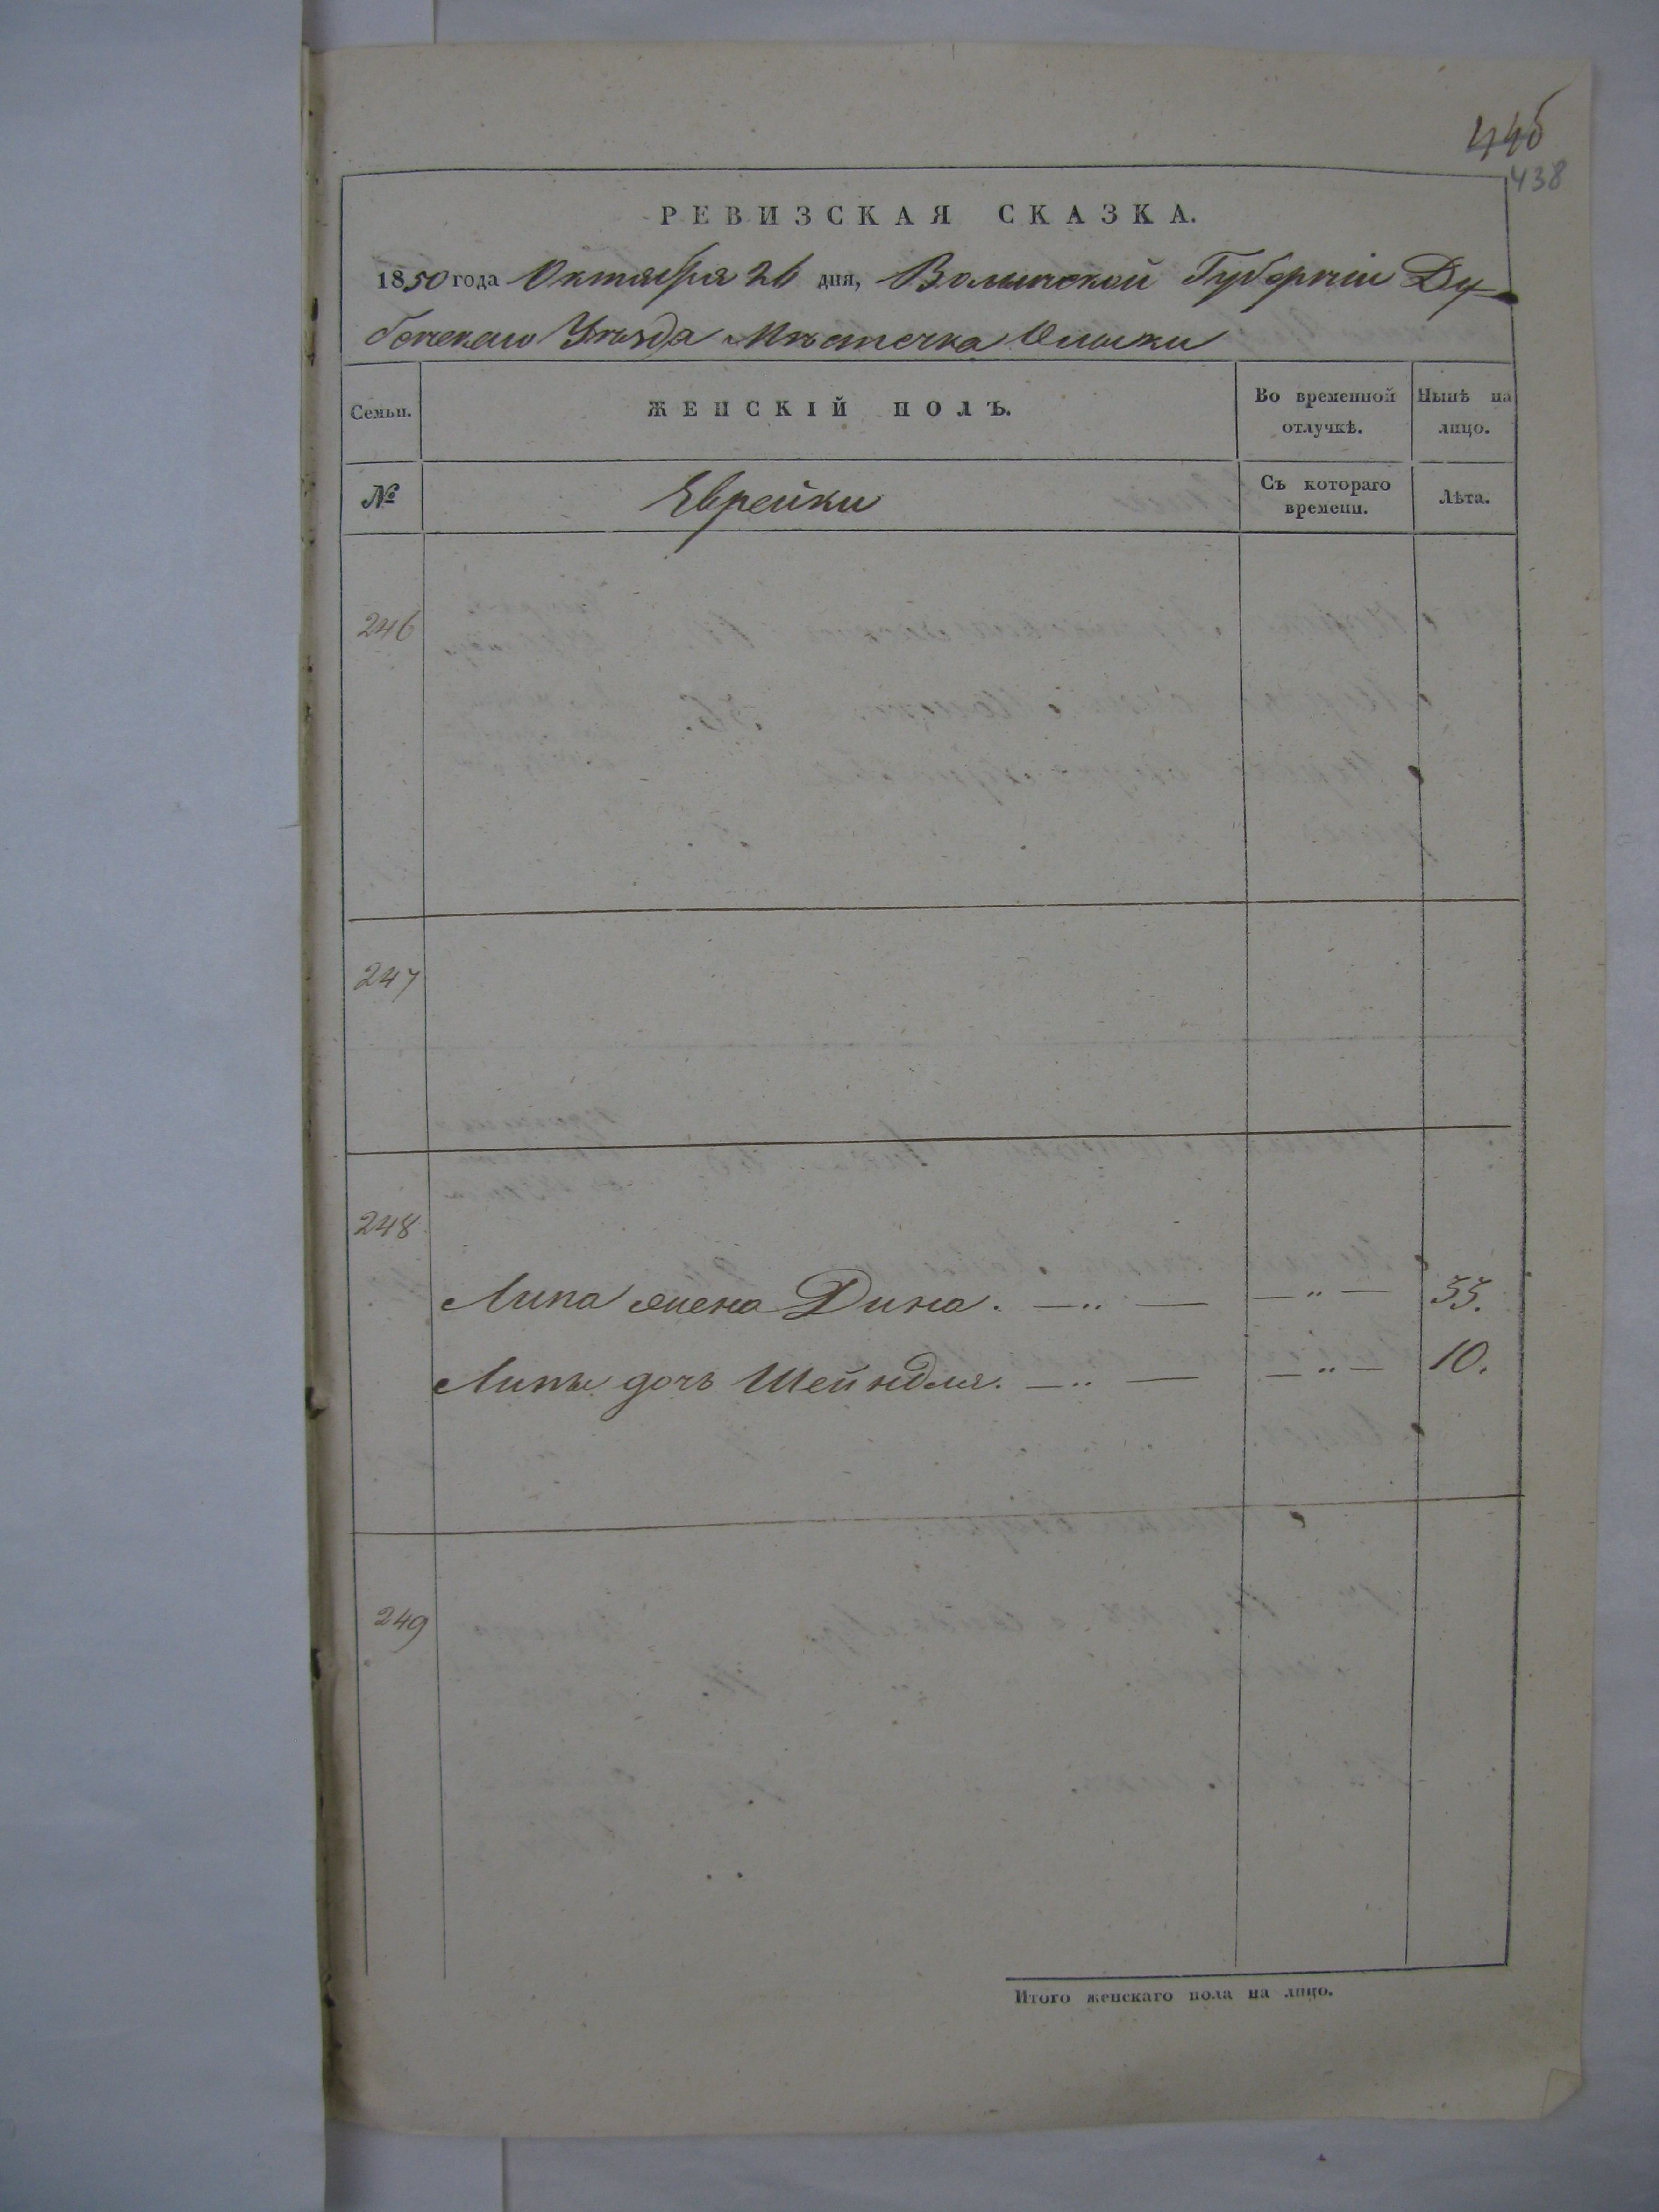 446
438
РЕВИЗСКАЯ СКАЗКА.
1850 года Октября 26 дня, Волынской Губерніи Ду-
бенскаго Уѣзда Мѣстечка Олыки
Семьи. ЖЕНСКІЙ ПОЛЪ. Во временной отлучкѣ. Нынѣ на лицо.
№ Еврейки Съ котораго времени. Лѣта.
246
247
248
Липа жена Дина. — „ — — „ — 55.
Липы дочь Шейндля. — „ — — „ — 10.
249
Итого женскаго пола на лицо.